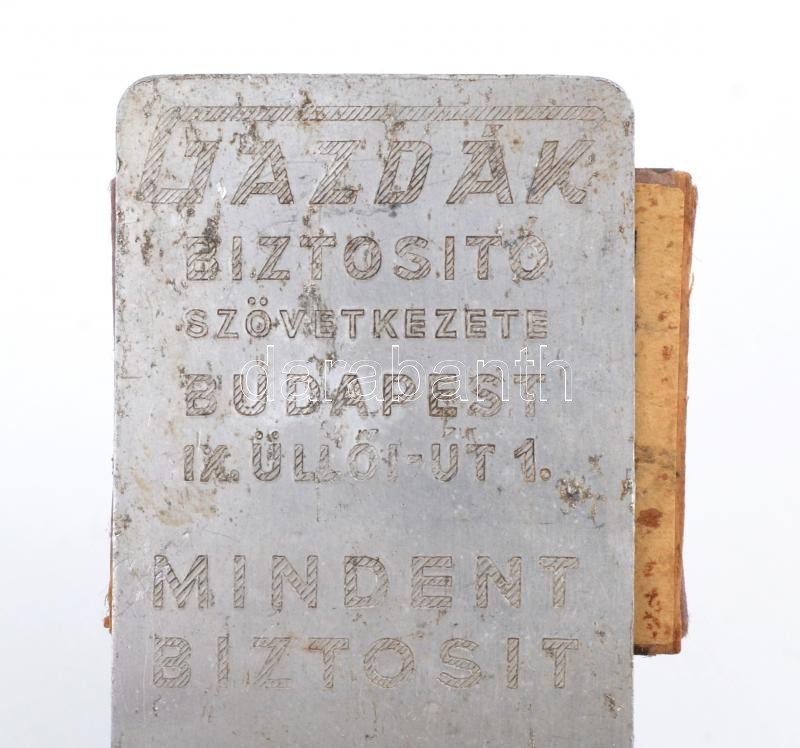 GAZDÁK
BIZTOSITÓ
SZÖVETKEZETE
BUDAPEST
IX. ÜLLŐI-ÚT 1.
MINDENT
BIZTOSIT
darabanth